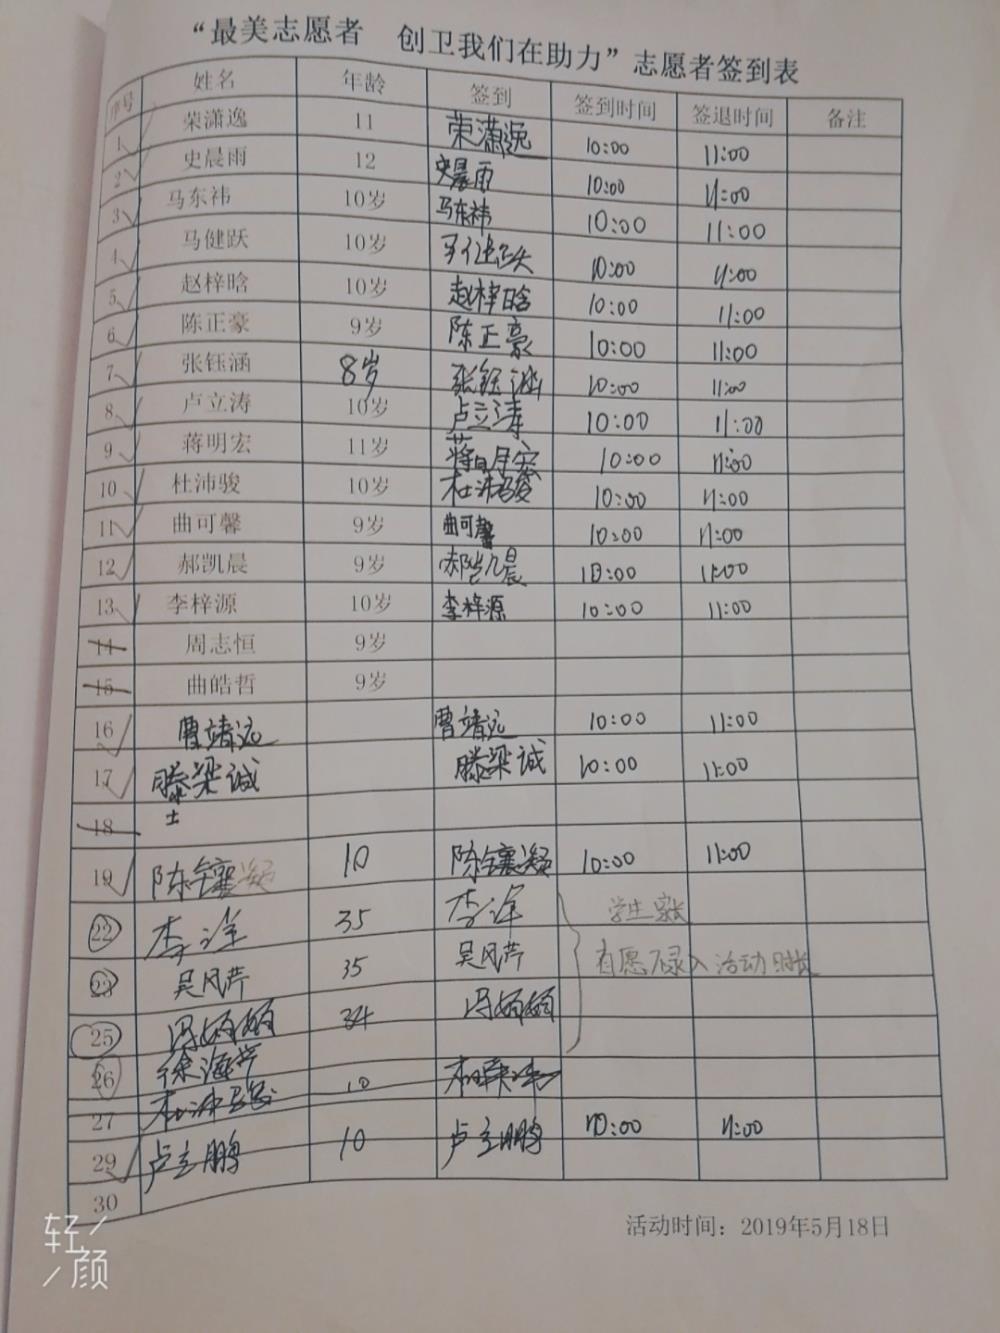 “最美志愿者 创卫我们在助力”志愿者签到表
序号 姓名 年龄 签到 签到时间 签退时间 备注
1 荣潇逸 11 荣潇逸 10:00 11:00
2 史晨雨 12 史晨雨 10:00 11:00
3 马东祎 10岁 马东祎 10:00 11:00
4 马健跃 10岁 马健跃 10:00 11:00
5 赵梓晗 10岁 赵梓晗 10:00 11:00
6 陈正豪 9岁 陈正豪 10:00 11:00
7 张钰涵 8岁 张钰涵 10:00 11:00
8 卢立涛 10岁 卢立涛 10:00 11:00
9 蒋明宏 11岁 蒋明宏 10:00 11:00
10 杜沛骏 10岁 杜沛骏 10:00 11:00
11 曲可馨 9岁 曲可馨 10:00 11:00
12 郝凯晨 9岁 郝凯晨 10:00 11:00
13 李梓源 10岁 李梓源 10:00 11:00
14 周志恒 9岁
15 曲皓哲 9岁
16 曹靖远 曹靖远 10:00 11:00
17 滕梁诚 滕梁诚 10:00 11:00
18 土
19 陈镶凝 10 陈镶凝 10:00 11:00
22 李洋 35 李洋 学生家长
23 吴风芹 35 吴风芹 自愿不录入活动时长
25 冯娇娇 34 冯娇娇
26 徐海
27 杜沛骏 10
29 卢立鹏 10 卢立鹏 10:00 11:00
30
活动时间：2019年5月18日
轻颜